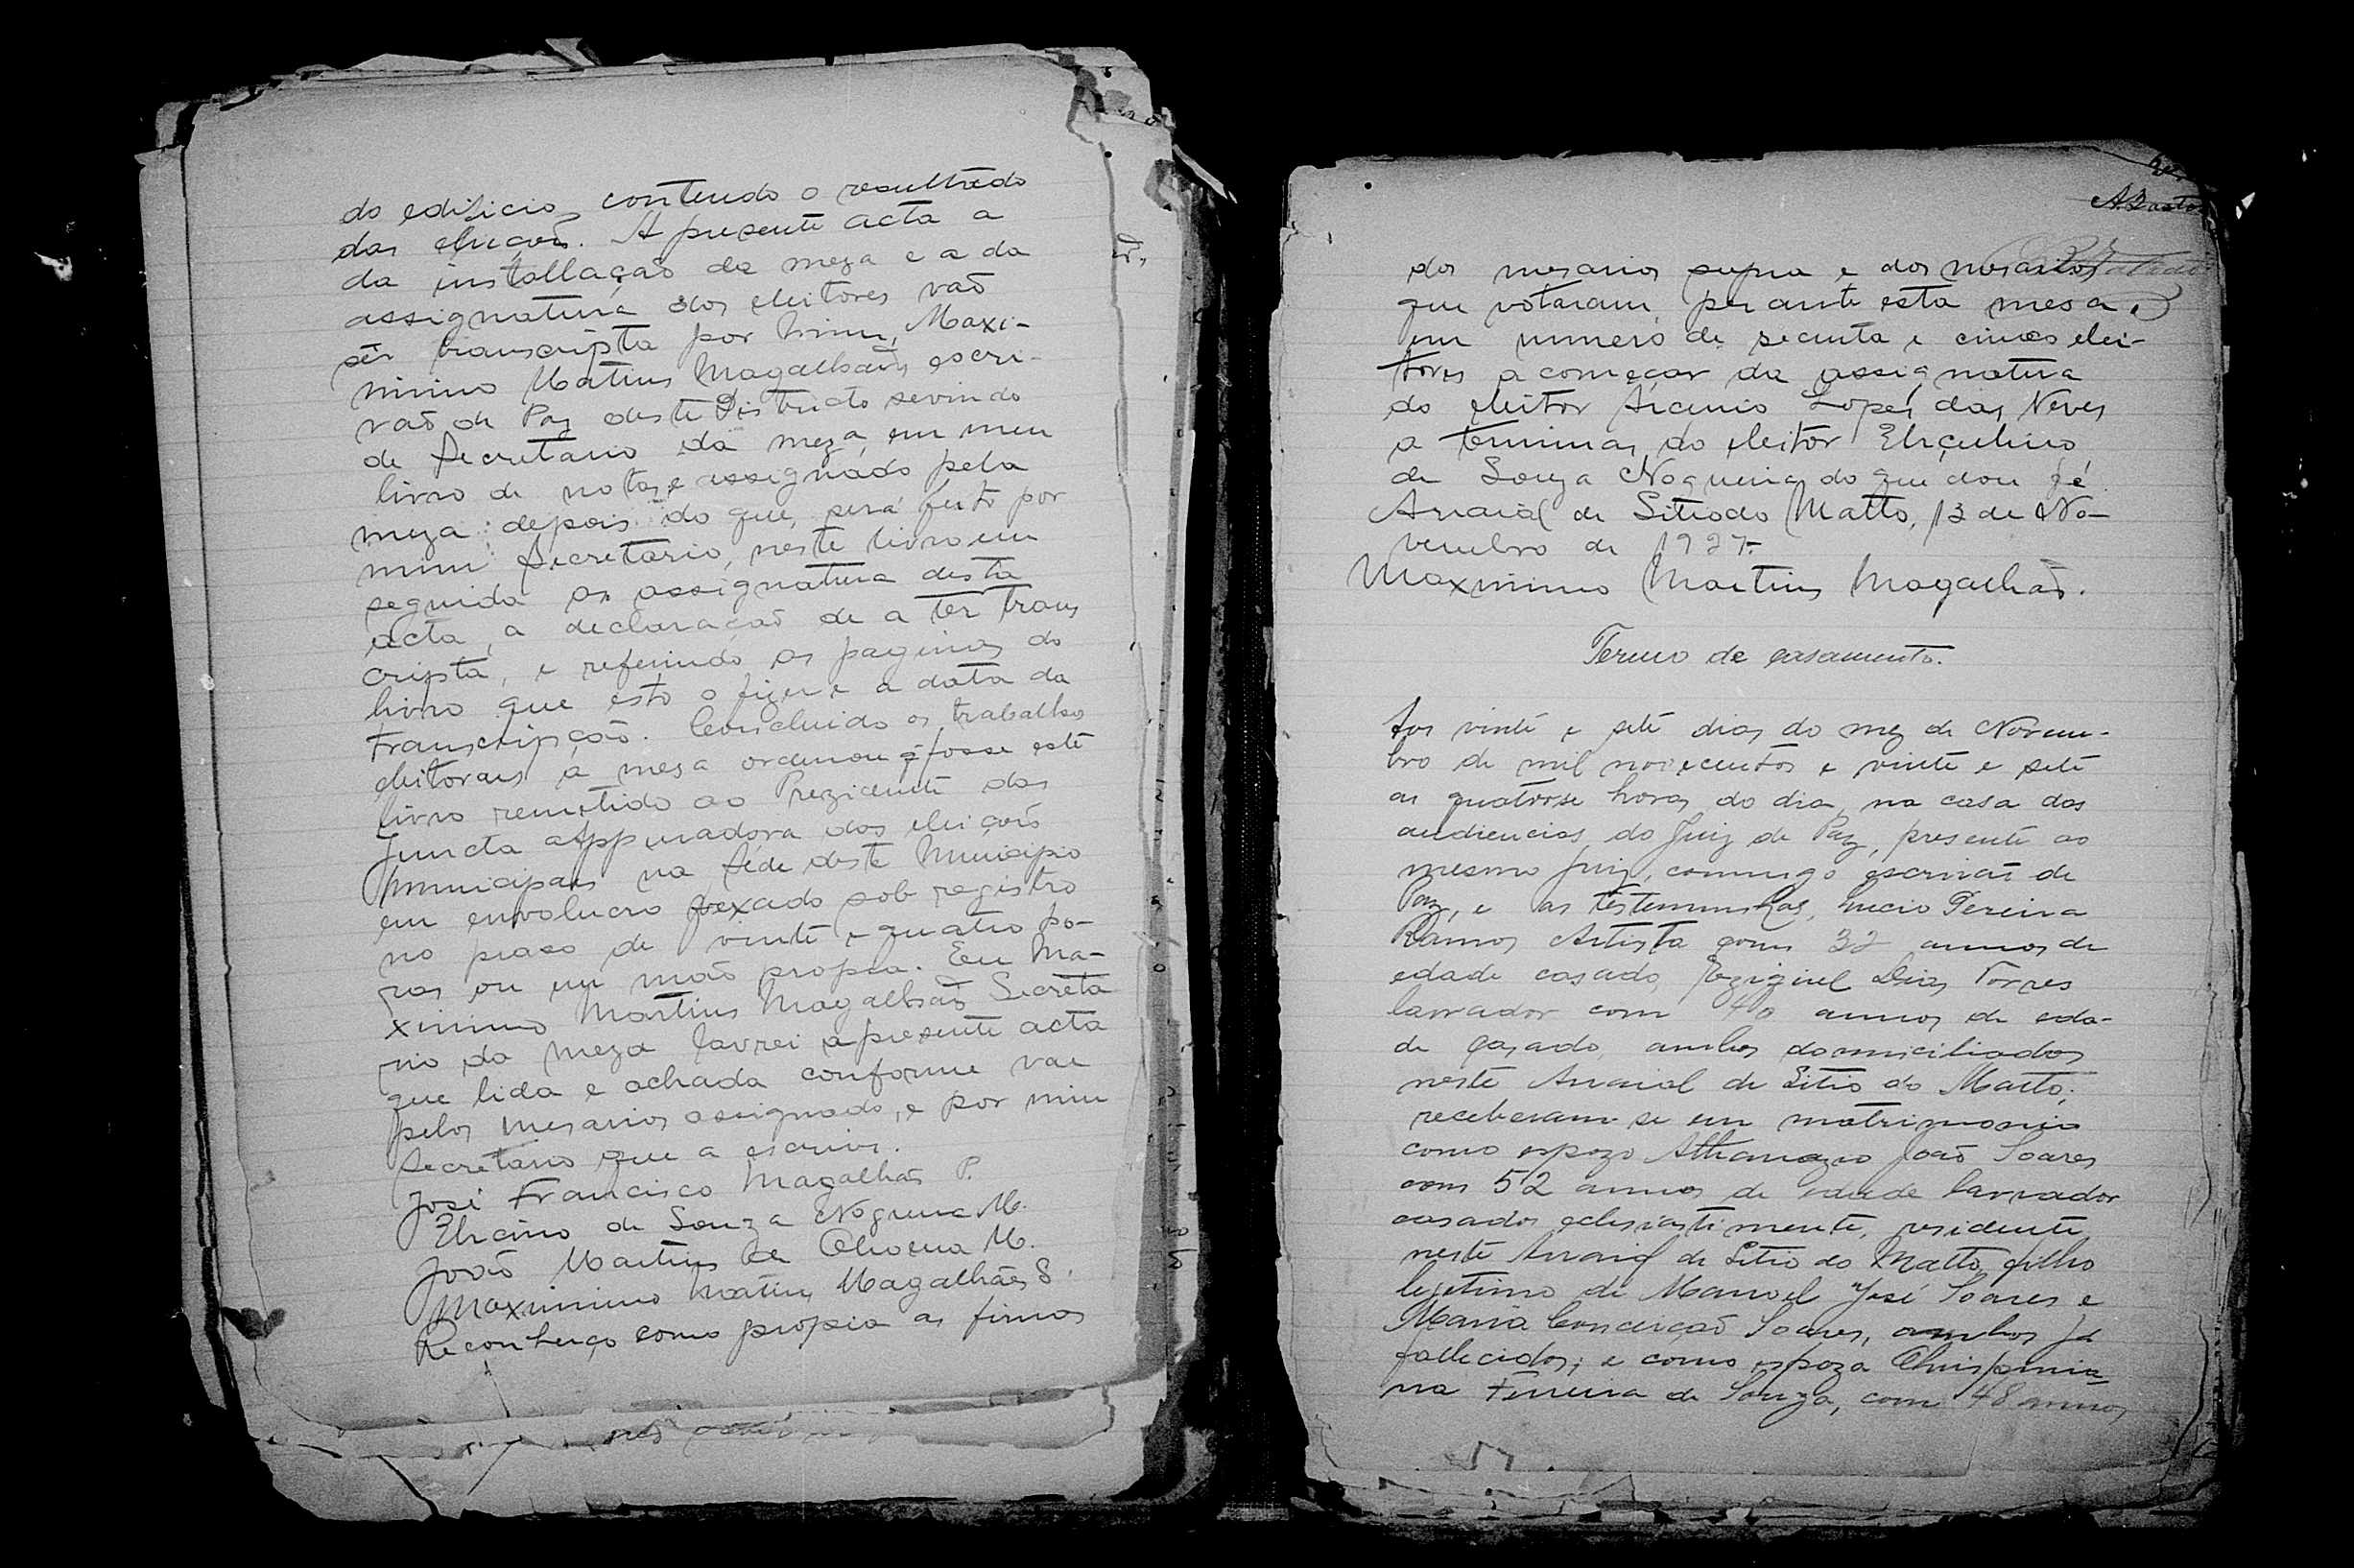 do edificio, contendo o resultado
das eleições. A presente acta a
da installação da meza e a da
assignatura dos eleitores vaõ
sêr transcripta por mim, Maxi-
mino Matins Magalhães escri-
vaõ de Paz deste Districto sevindo
de Secretario da meza, em meu
livro de notas, e assignado pela
meza: depois do que, será feito por
mim Secretario, neste livro em
seguida as assignatura desta
acta, a declaração de a ter trans
cripta, e referindo as paginas do
livro que esto o fizer e a data da
transcripção. Concluido os trabalho
eleitoraes a mesa ordenou q̃ fosse este
livro remetido ao Prezidente das
Juncta Appuradora das eleiçoẽs
municipaes na séde deste Municipio
em envolucro fexado sob registro
no praso de vinte e quatro ho-
ras ou em maõ propia. Eu Ma-
ximino Martins Magalhaẽs Secreta
rio da meza lavrei a presente acta
que lida e achada conforme vae
pelos mesarios assignado, e por mim
Secretario que a escrivi.
José Francisco Magalhães P.
Elicino de Souza Nogueira M.
João Martins de Oliveira M.
Maximino Matins Magalhães S.
Reconheço como propia as firmas
A. Bastos
dos mesarios supra e dos mesarios
que votaram, perante esta mesa e
em numero de secenta e cinco elei-
tores a começar da assignatura
do eleitor Arcenio Lopes das Neves
a terminar do eleitor
de Souza Nogueira do que dou fé
Arraial de Sitio do Matto, 13 de No-
vembro de 1927.
Maximino Martins Magalhães.
Termo de casamento.
Aos vinte e sete dias do mez de Novem-
bro de mil novecentos e vinte e sete
as quatorse horas do dia, na casa das
audiencias do Juiz de Paz, presente ao
mesmo juiz, commigo escrivaõ de
Paz, e as testemunhas, Lucio Pereira
Ramos Artista com 32 annos de
edade casado, Ezigiuel Dias Torres
lavrador com 40 annos de eda-
de casado, ambos domiciliados
neste Arraial de Sitio do Matto;
receberam se em matrimonio
como espozo Athanazio João Soares
com 52 annos de edade lavrador
casados eclesiastimente, residente
neste Arraial de Sitio do Matto, filho
legetimo de Manoel José Soares e
Maria Conceição Soares, ambos já
fallecidos; e como espoza Chrispinia-
na Ferreira de Souza, com 48 annos